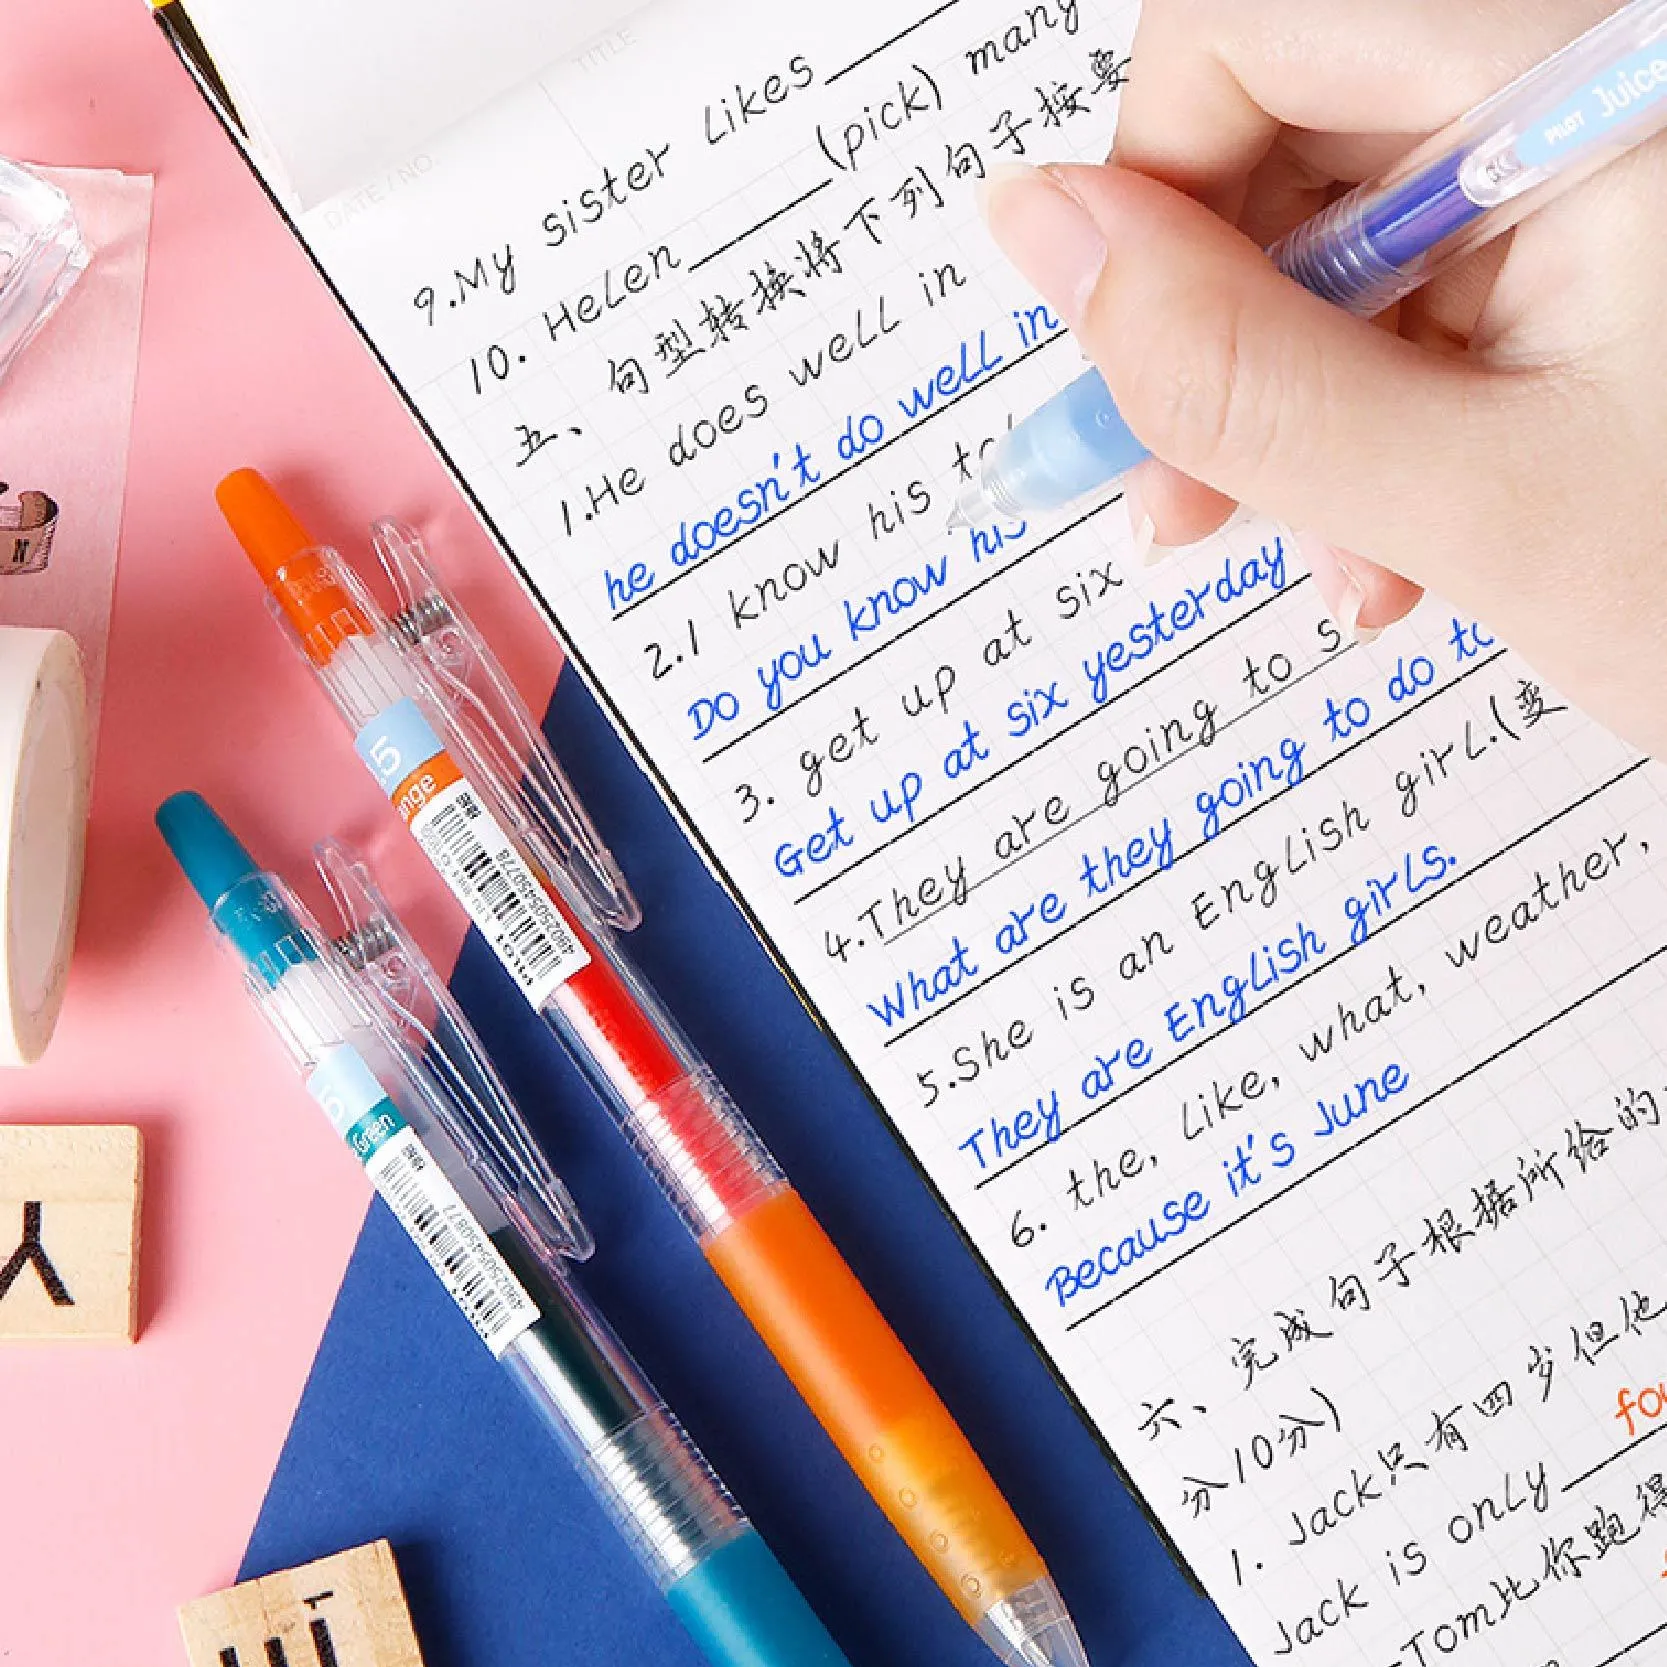 TITLE
DATE / NO.
9. My sister Likes
10. Helen (pick) many
五、 句型转换将下列句子按要
1. He does well in
he doesn't do well in
2. I know his
Do you know his
3. get up at six
Get up at six yesterday
4. They are going to s
What are they going to do to
5. She is an English girl. (变
They are English girls.
6. the, Like, what, weather,
Because it's June
六、 完成句子根据所给的
分10分)
1. Jack只有四岁但他
Jack is only
Tom比你跑得
PILOT Juice
.5
ange
4902505450778
PILOT
5
Green
Y